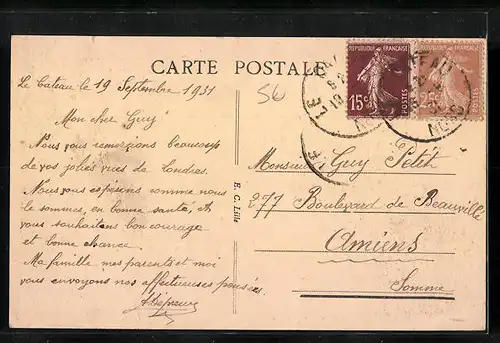 CARTE POSTALE
56
Le Cateau le 19 Septembre 1931
Mon cher Guy
Nous vous remerzions beaucoup
de vos jolies vues de Londres.
Nous vous espérons comme nous
le sommes, en bonne santé, et
vous souhaitons bon courage
et bonne chance.
Ma famille mes parents et moi
vous envoyons nos affectueuses pensées.
E. C. Lille
REPUBLIQUE FRANÇAISE
15c
POSTES
REPUBLIQUE FRANÇAISE
25c
POSTES
NORD
Monsieur Guy Petit
277 Boulevard de Beauvillé
Amiens
Somme